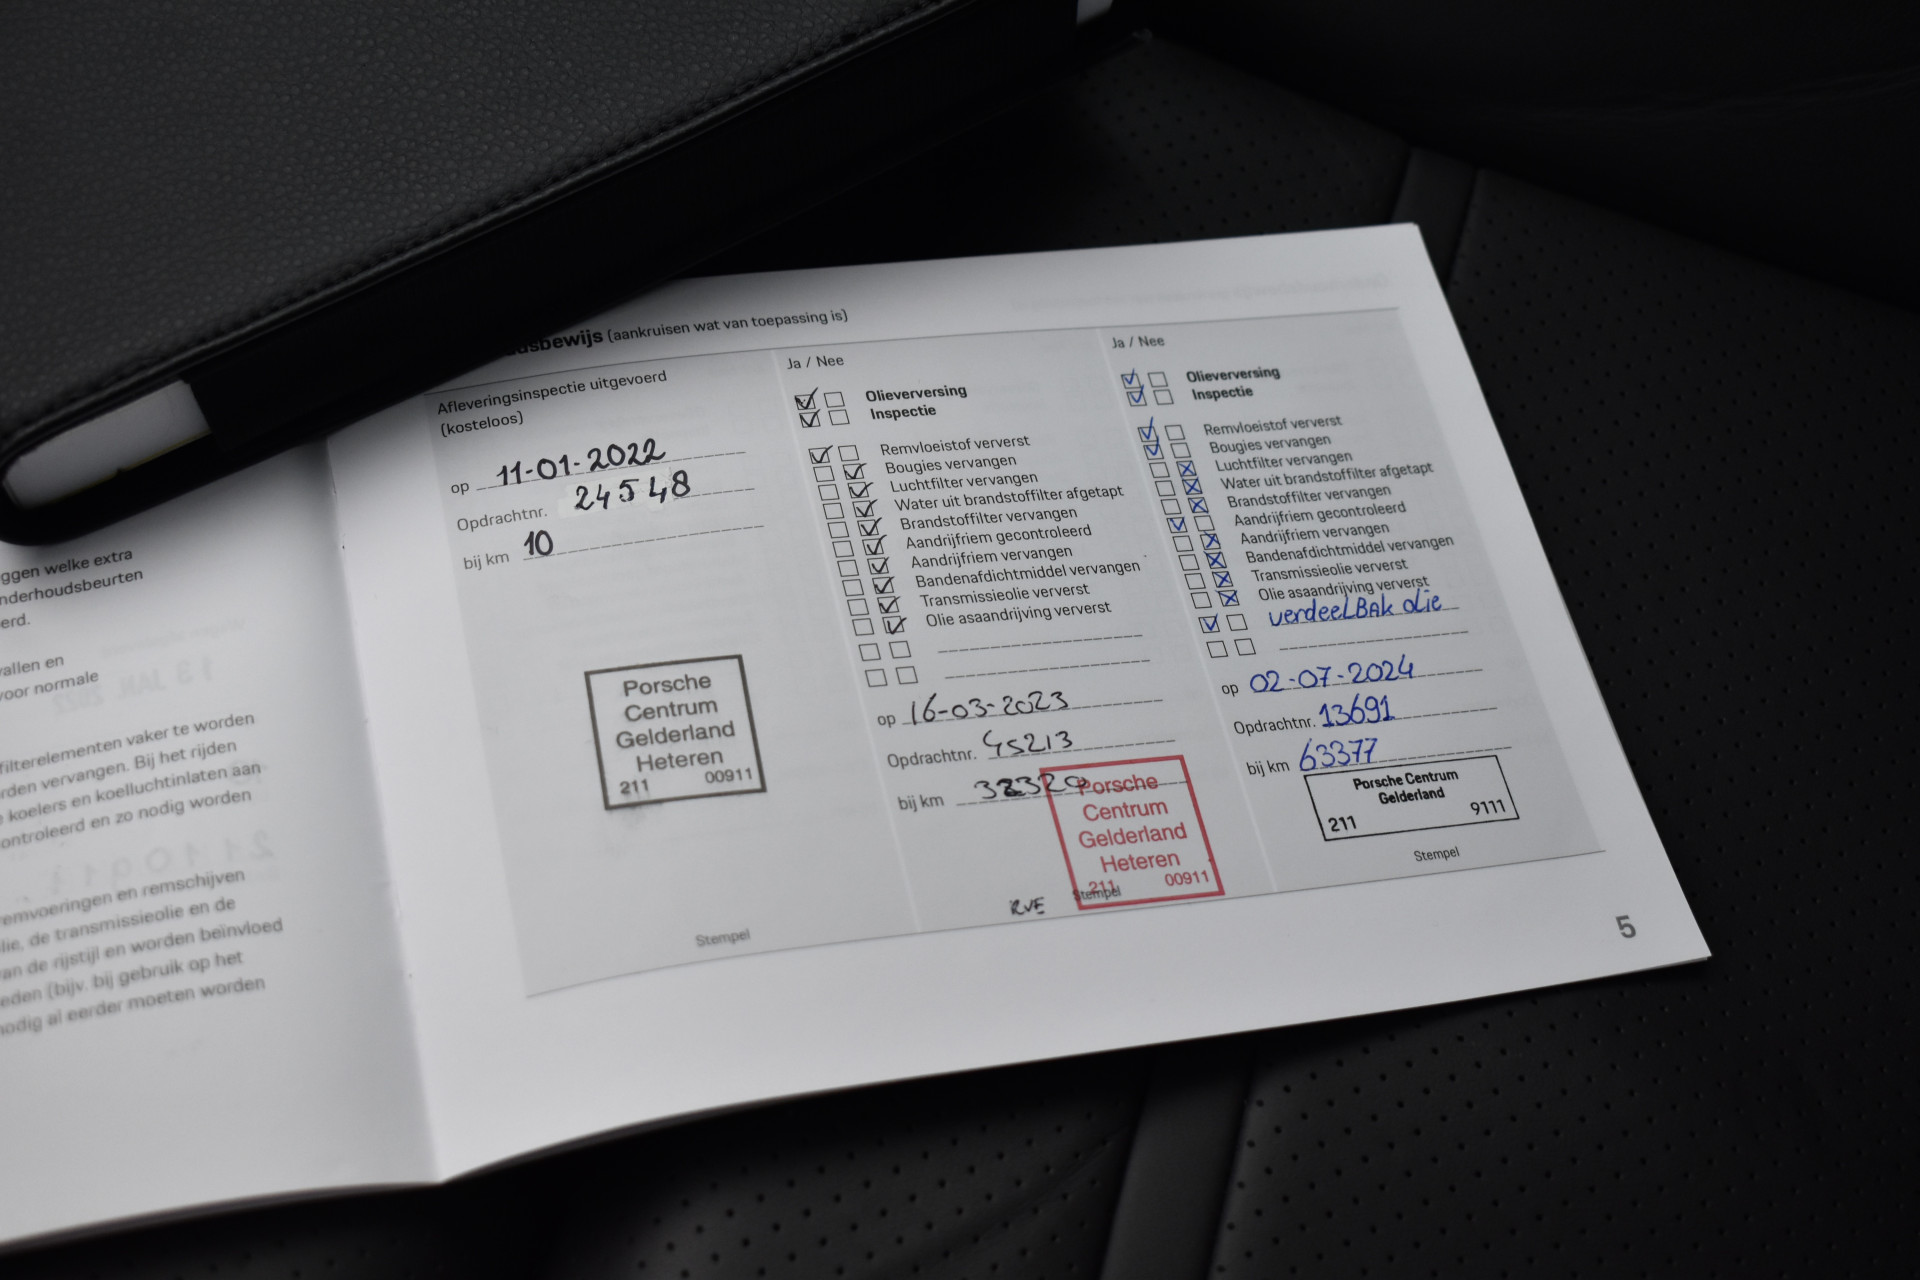 ggen welke extra
nderhoudsbeurten
erd.
vallen en
voor normale
filterelementen vaker te worden
rden vervangen. Bij het rijden
koelers en koelluchtinlaten aan
ontroleerd en zo nodig worden
emvoeringen en remschijven
lie, de transmissieolie en de
an de rijstijl en worden beïnvloed
eden (bijv. bij gebruik op het
nodig al eerder moeten worden
udsbewijs (aankruisen wat van toepassing is)
Afleveringsinspectie uitgevoerd
(kosteloos)
op 11-01-2022
Opdrachtnr. 24548
bij km 10
Porsche
Centrum
Gelderland
Heteren
211 00911
Stempel
Ja / Nee
Olieverversing
Inspectie
Remvloeistof ververst
Bougies vervangen
Luchtfilter vervangen
Water uit brandstoffilter afgetapt
Brandstoffilter vervangen
Aandrijfriem gecontroleerd
Aandrijfriem vervangen
Bandenafdichtmiddel vervangen
Transmissieolie ververst
Olie asaandrijving ververst
op 16-03-2023
Opdrachtnr. 45213
bij km
Porsche
Centrum
Gelderland
Heteren
211 00911
RVE Stempel
Ja / Nee
Olieverversing
Inspectie
Remvloeistof ververst
Bougies vervangen
Luchtfilter vervangen
Water uit brandstoffilter afgetapt
Brandstoffilter vervangen
Aandrijfriem gecontroleerd
Aandrijfriem vervangen
Bandenafdichtmiddel vervangen
Transmissieolie ververst
Olie asaandrijving ververst
verdeelBAk olie
op 02-07-2024
Opdrachtnr. 13691
bij km 63377
Porsche Centrum
Gelderland
211 9111
Stempel
5